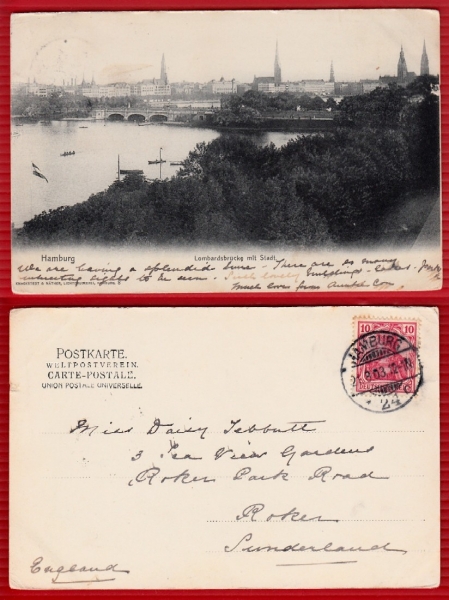 Hamburg
Lombardsbrücke mit Stadt
We are having a splendid time - There are so many
interesting sights to be seen - Such lovely buildings - lakes - parks
Much love from Auntie
POSTKARTE.
WELTPOSTVEREIN.
CARTE-POSTALE.
UNION POSTALE UNIVERSELLE.
10 10
HAMBURG
03
24
Miss Daisy Tebbutt
3 Sea View Gardens
Roker Park Road
Roker
Sunderland
England